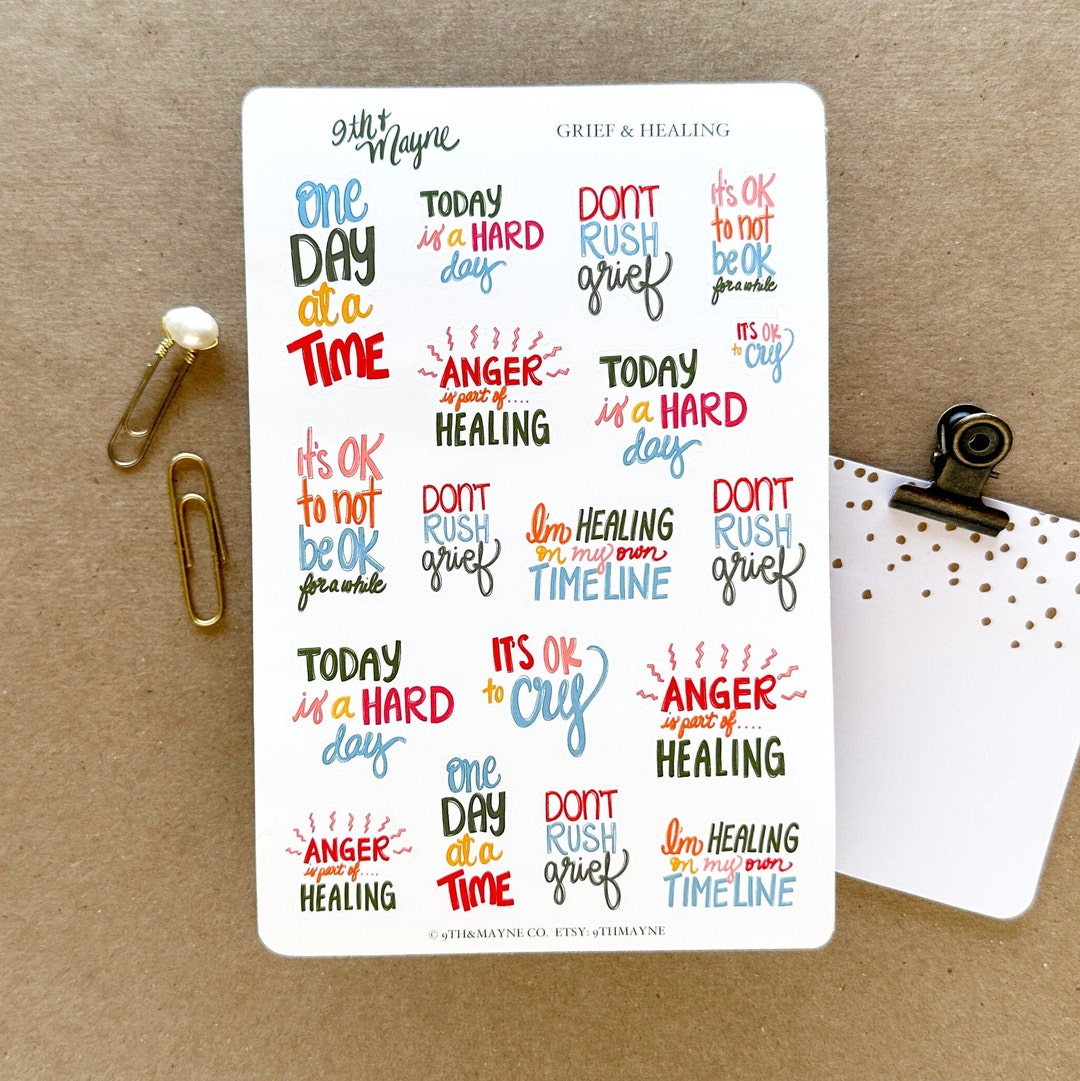 9th +
Mayne
GRIEF & HEALING
one
DAY
at a
TIME
TODAY
is a HARD
day
DON'T
RUSH
grief
it's OK
to not
be OK
for a while
ANGER
is part of....
HEALING
TODAY
is a HARD
day
IT'S OK
to cry
it's OK
to not
be OK
for a while
DON'T
RUSH
grief
I'm HEALING
on my own
TIMELINE
DON'T
RUSH
grief
TODAY
is a HARD
day
IT'S OK
to cry
ANGER
is part of....
HEALING
ANGER
is part of....
HEALING
one
DAY
at a
TIME
DON'T
RUSH
grief
I'm HEALING
on my own
TIMELINE
© 9TH&MAYNE CO. ETSY: 9THMAYNE